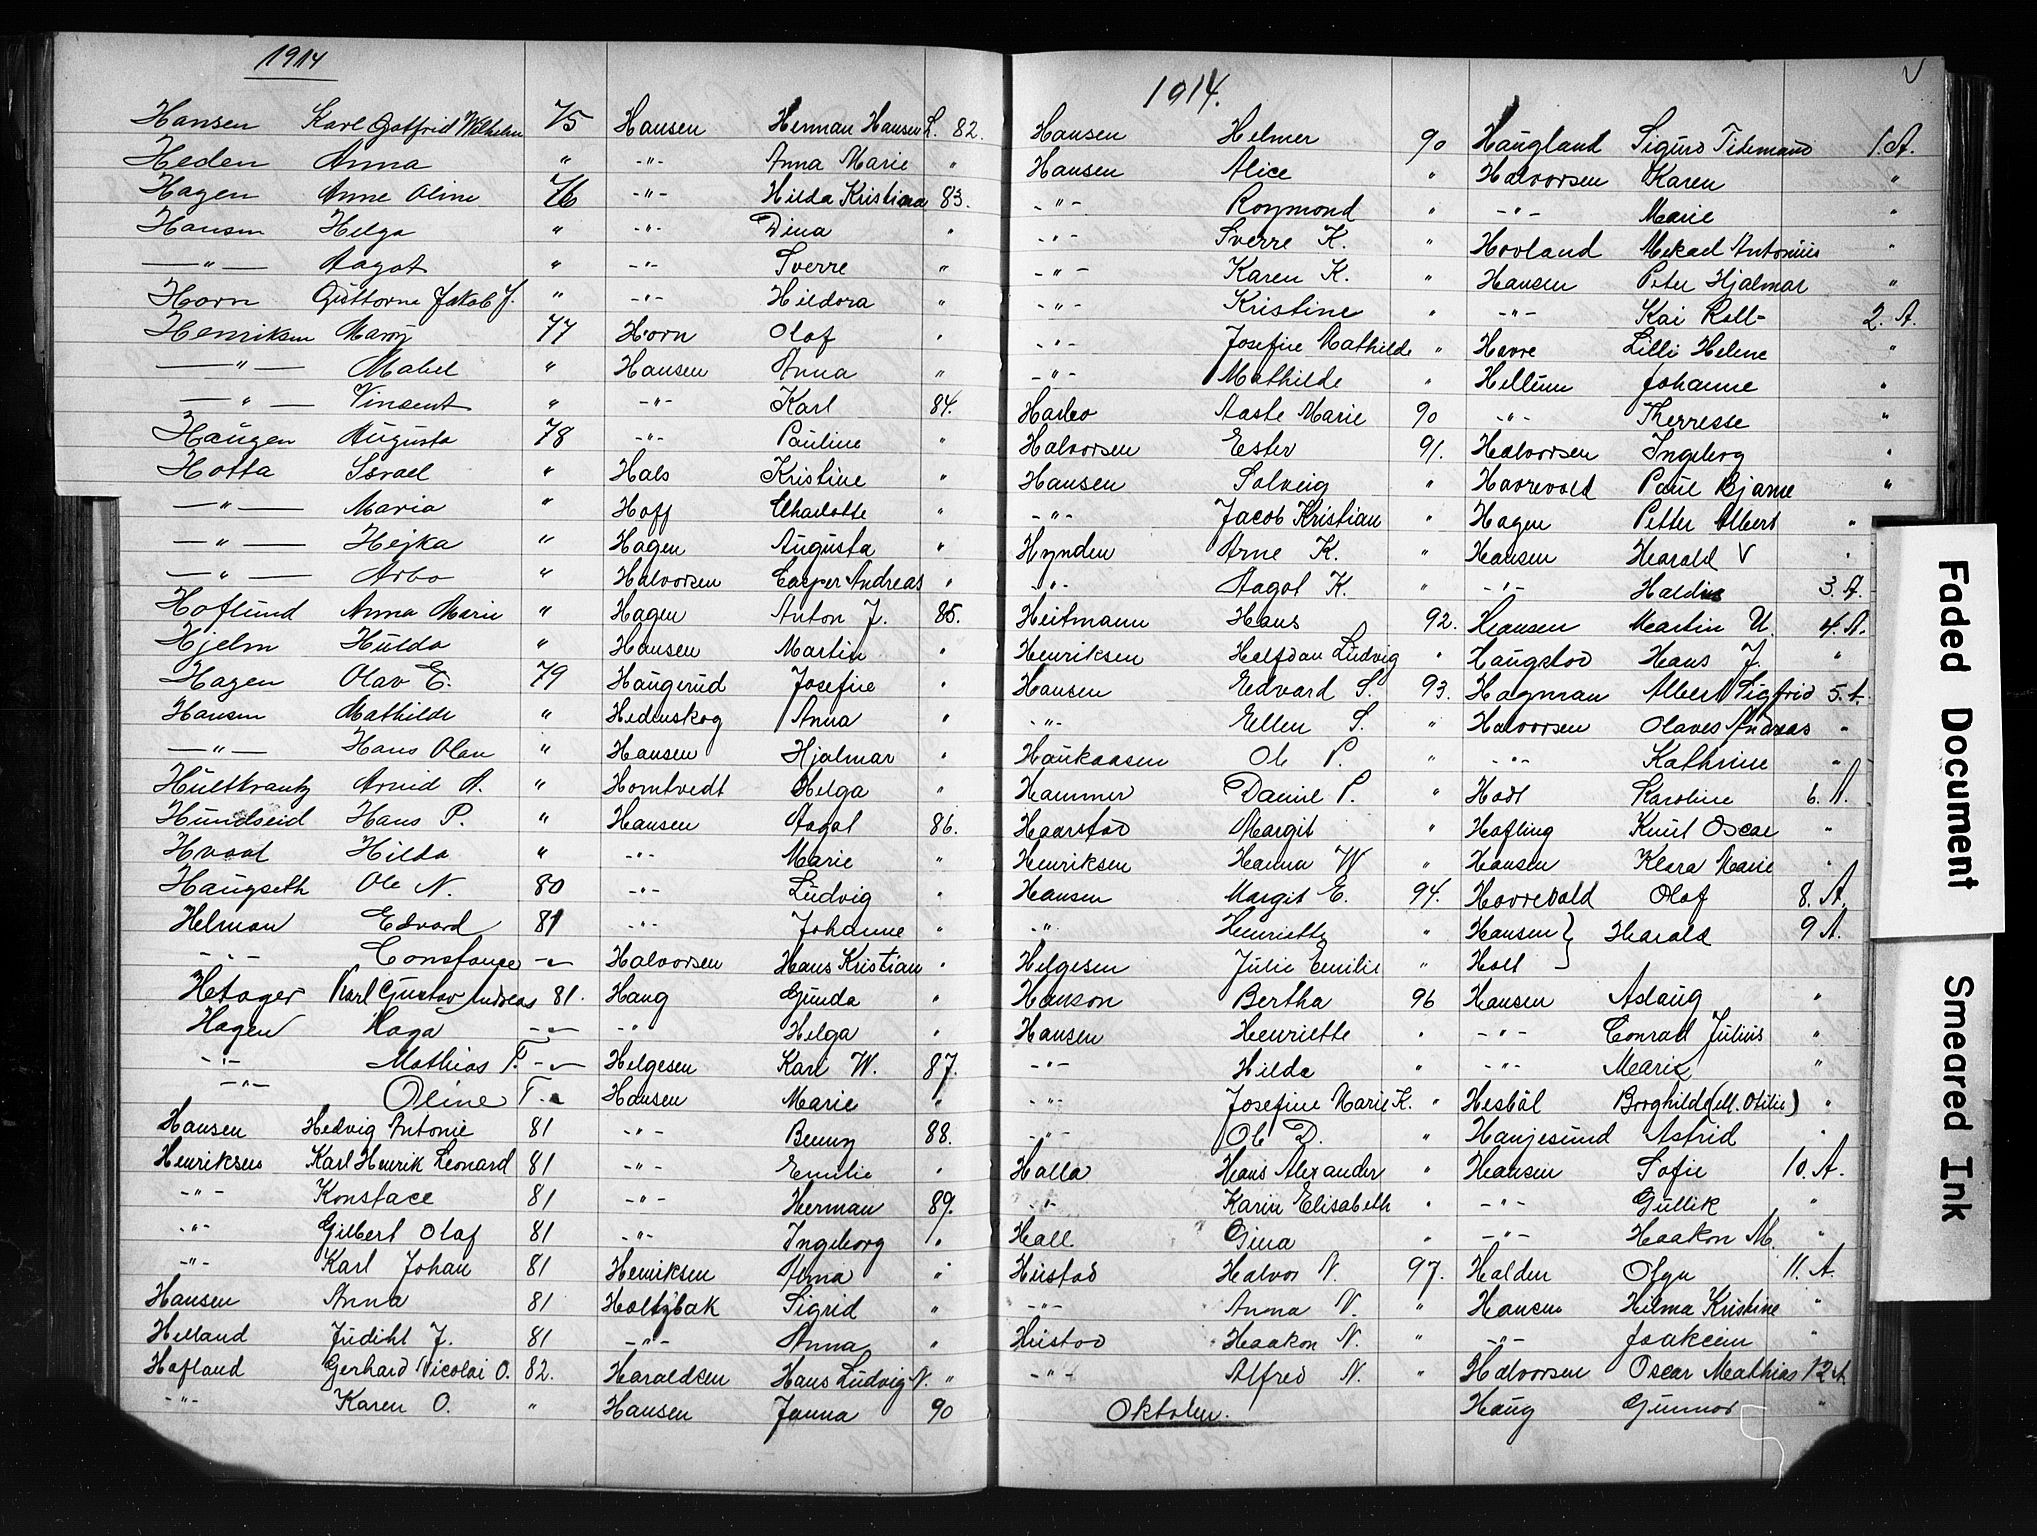 1914
Hansen Karl Gotfrid Wilhelm 75
Heden Anna "
Hagen Anne Oline 76
Hansen Helga "
—"— Aagot "
Horn Guttorne Jakob J. "
Henriksen Mary 77
—"— Mabel "
—"— Vinsent "
Haugen Augusta 78
Hotta Israel "
—"— Maria "
—"— Hejka "
—"— Arbo "
Hoflund Anna Marie "
Hjelm Hulda "
Hagen Olav E. 79
Hansen Mathilde "
—"— Hans Olan "
Hultkrantz Arvid A. "
Hundseid Hans P. "
Hvaal Hilda "
Haugseth Ole N. 80
Helman Edvard 81
-"- Constance -"-
Hetager Karl Gustav Andreas 81.
Hagen Haga -"-
-"- Mathias T. -"-
-"- Oline T. "
Hansen Hedvig Antonie 81
Henriksen Karl Henrik Leonard 81
-"- Konstace 81
-"- Gilbert Olaf 81
-"- Karl Johan 81
Hansen Anna 81
Helland Judiht J. 81
Hafland Gerhard Nicolai O. 82.
-"- Karen O. "
Hansen Herman Hansen L. 82.
-"- Anna Marie "
-"- Hilda Kristiana 83.
-"- Dina "
-"- Sverre "
-"- Hildora "
Horn Olaf "
Hansen Anna "
-"- Karl 84.
-"- Pauline "
Hals Kristine "
Hoff Charlotte "
Hagen Augusta "
Halvorsen Casper Andreas "
Hagen Anton J. 85.
Hansen Martin "
Haugerud Josefine "
Hedenskog Anna "
Hansen Hjalmar "
Homtvedt Helga "
Hansen Aagot 86.
-"- Marie "
-"- Ludvig "
-"- Johanne "
Halvorsen Hans Kristian "
Haug Gunda "
-"- Helga "
Helgesen Kari W. 87.
Hansen Marie "
-"- Benny 88.
-"- Emilie "
-"- Herman 89.
-"- Ingeborg "
Henriksen Alma "
Holtzbak Sigrid "
-"- Anna "
Haraldsen Hans Ludvig N. "
Hansen Janna 90
1914.
Hansen Helmer 90
Hansen Alice "
-"- Roymond "
-"- Sverre K. "
-"- Karen K. "
-"- Kristine "
-"- Josefine Mathilde "
-"- Mathilde "
Harbo Aaste Marie 90
Halvorsen Ester 91.
Hansen Solveig "
-"- Jacob Kristian "
Hynden Arne K. "
-"- Aagot K. "
Heitmann Hans 92.
Henriksen Halfdan Ludvig "
Hansen Edvard S. 93.
-"- Ellen S. "
Haukaasen Ole P. "
Hammer Daniel P. "
Haarstad Margit "
Henriksen Hanna W "
Hansen Margit E. 94.
-"- Henriette "
Helgesen Julie Emilie "
Hanson Bertha 96
Hansen Henriette "
-"- Hilda "
-"- Josefine Marie K. "
-"- Ole D. "
Halla Hans Alexander "
-"- Karin Elisabeth "
Hall Gina "
Hustad Halvor N. 97.
-"- Anna N. "
Hustad Haakon N. "
-"- Alfred N. "
Oktober.
Haugland Sigurd Tidemand 1. A.
Halvorsen Karen "
-"- Marie "
Hovland Mekael Antonius "
Hansen Peter Hjalmar "
-"- Kai Roll- 2. A.
Havre Lilli Helene "
Hellum Johanne "
-"- Therresse "
Halvorsen Ingeborg "
Havrevold Paul Bjarne "
Hagen Petter Albert "
Hansen Harald V "
-"- Haldis 3. A.
Hansen Martin U. 4. A.
Haugstad Hans J. "
Hagman Albert Sigfrid 5. A.
Halvorsen Olaves Andreas "
-"- Kathrine "
Hodt Karoline 6. A.
Hofling Knut Oscar "
Hansen Klara Marie "
Havrevold Olaf 8. A.
Hansen } Harald 9 A.
Holt }
Hansen Aslaug "
-"- Conrad Julius "
-"- Marie "
Hesbøl Borghilde (ell. Otilie) "
Hanjesund Astrid "
Hansen Sofie 10. A.
-"- Gullik "
-"- Haakon M. "
Halden Olga 11. A.
Hansen Hilma Kristine "
-"- Joakeim "
Halvorsen Oscar Mathias 12 A.
Haug Gunnar "
Faded Document
Smeared Ink